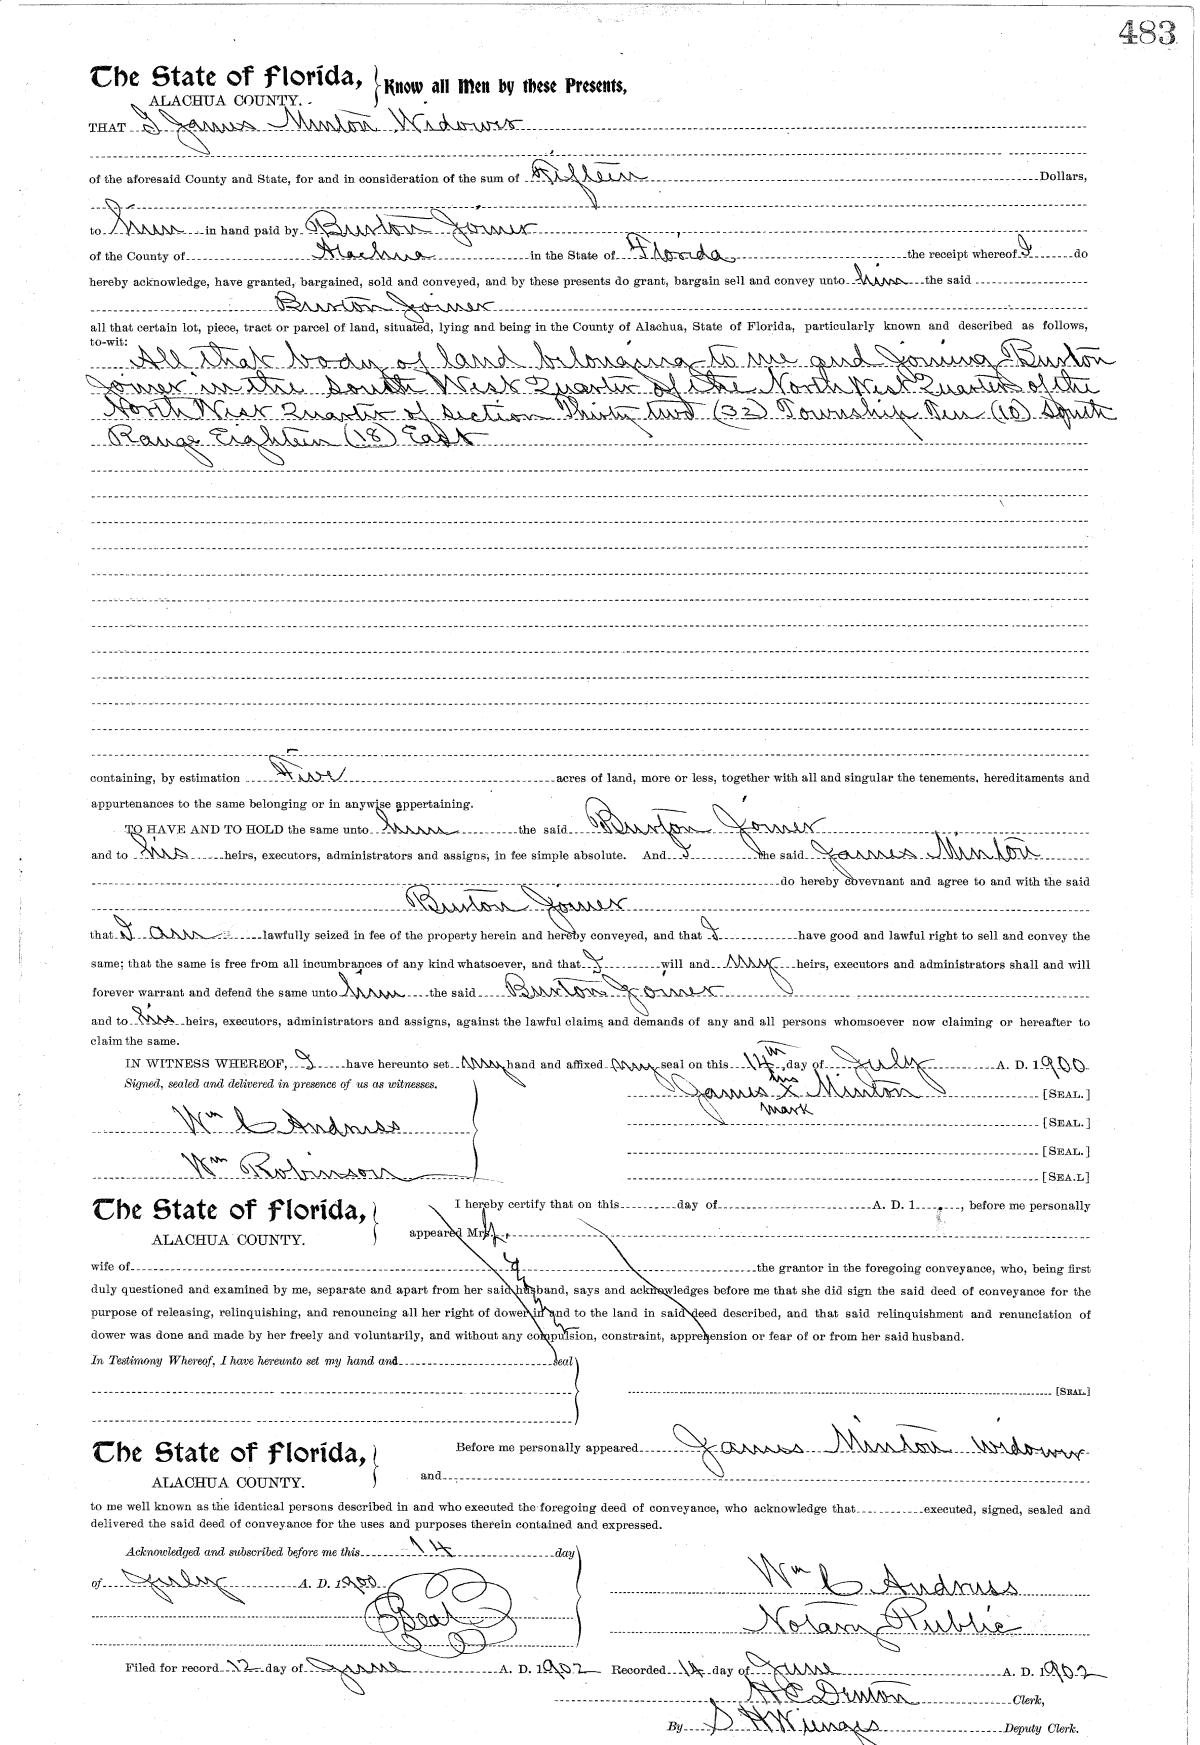 483
The State of Florida, } Know all Men by these Presents,
ALACHUA COUNTY.
THAT I James Minton Widower
of the aforesaid County and State, for and in consideration of the sum of Fifteen Dollars,
to him in hand paid by Burton Joiner
of the County of Alachua in the State of Florida the receipt whereof I do
hereby acknowledge, have granted, bargained, sold and conveyed, and by these presents do grant, bargain sell and convey unto him the said
Burton Joiner
all that certain lot, piece, tract or parcel of land, situated, lying and being in the County of Alachua, State of Florida, particularly known and described as follows,
to-wit:
All that body of land belonging to me and Joining Burton
Joiner in the South West Quarter of the North West Quarter of the
North West Quarter of Section Thirty two (32) Township Ten (10) South
Range Eighteen (18) East
containing, by estimation Five acres of land, more or less, together with all and singular the tenements, hereditaments and
appurtenances to the same belonging or in anywise appertaining.
TO HAVE AND TO HOLD the same unto him the said Burton Joiner
and to his heirs, executors, administrators and assigns, in fee simple absolute. And I the said James Minton
do hereby covevnant and agree to and with the said
Burton Joiner
that I am lawfully seized in fee of the property herein and hereby conveyed, and that I have good and lawful right to sell and convey the
same; that the same is free from all incumbrances of any kind whatsoever, and that I will and my heirs, executors and administrators shall and will
forever warrant and defend the same unto him the said Burton Joiner
and to his heirs, executors, administrators and assigns, against the lawful claims and demands of any and all persons whomsoever now claiming or hereafter to
claim the same.
IN WITNESS WHEREOF, I have hereunto set my hand and affixed my seal on this 14th day of July A. D. 1900
Signed, sealed and delivered in presence of us as witnesses.
his
James X Minton [SEAL.]
mark
Wm C Andruss [SEAL.]
[SEAL.]
Wm Robinson [SEA.L]
The State of Florida, } I hereby certify that on this day of A. D. 1 , before me personally
ALACHUA COUNTY. appeared Mrs.
wife of the grantor in the foregoing conveyance, who, being first
duly questioned and examined by me, separate and apart from her said husband, says and acknowledges before me that she did sign the said deed of conveyance for the
purpose of releasing, relinquishing, and renouncing all her right of dower in and to the land in said deed described, and that said relinquishment and renunciation of
dower was done and made by her freely and voluntarily, and without any compulsion, constraint, apprehension or fear of or from her said husband.
In Testimony Whereof, I have hereunto set my hand and seal
[SEAL.]
The State of Florida, } Before me personally appeared James Minton widower
ALACHUA COUNTY. and
to me well known as the identical persons described in and who executed the foregoing deed of conveyance, who acknowledge that executed, signed, sealed and
delivered the said deed of conveyance for the uses and purposes therein contained and expressed.
Acknowledged and subscribed before me this 14 day
of July A. D. 1900
Wm C Andruss
Seal
Notary Public
Filed for record 12 day of June A. D. 1902 Recorded 14 day of June A. D. 1902
H C Denton Clerk,
By S H Wienges Deputy Clerk.